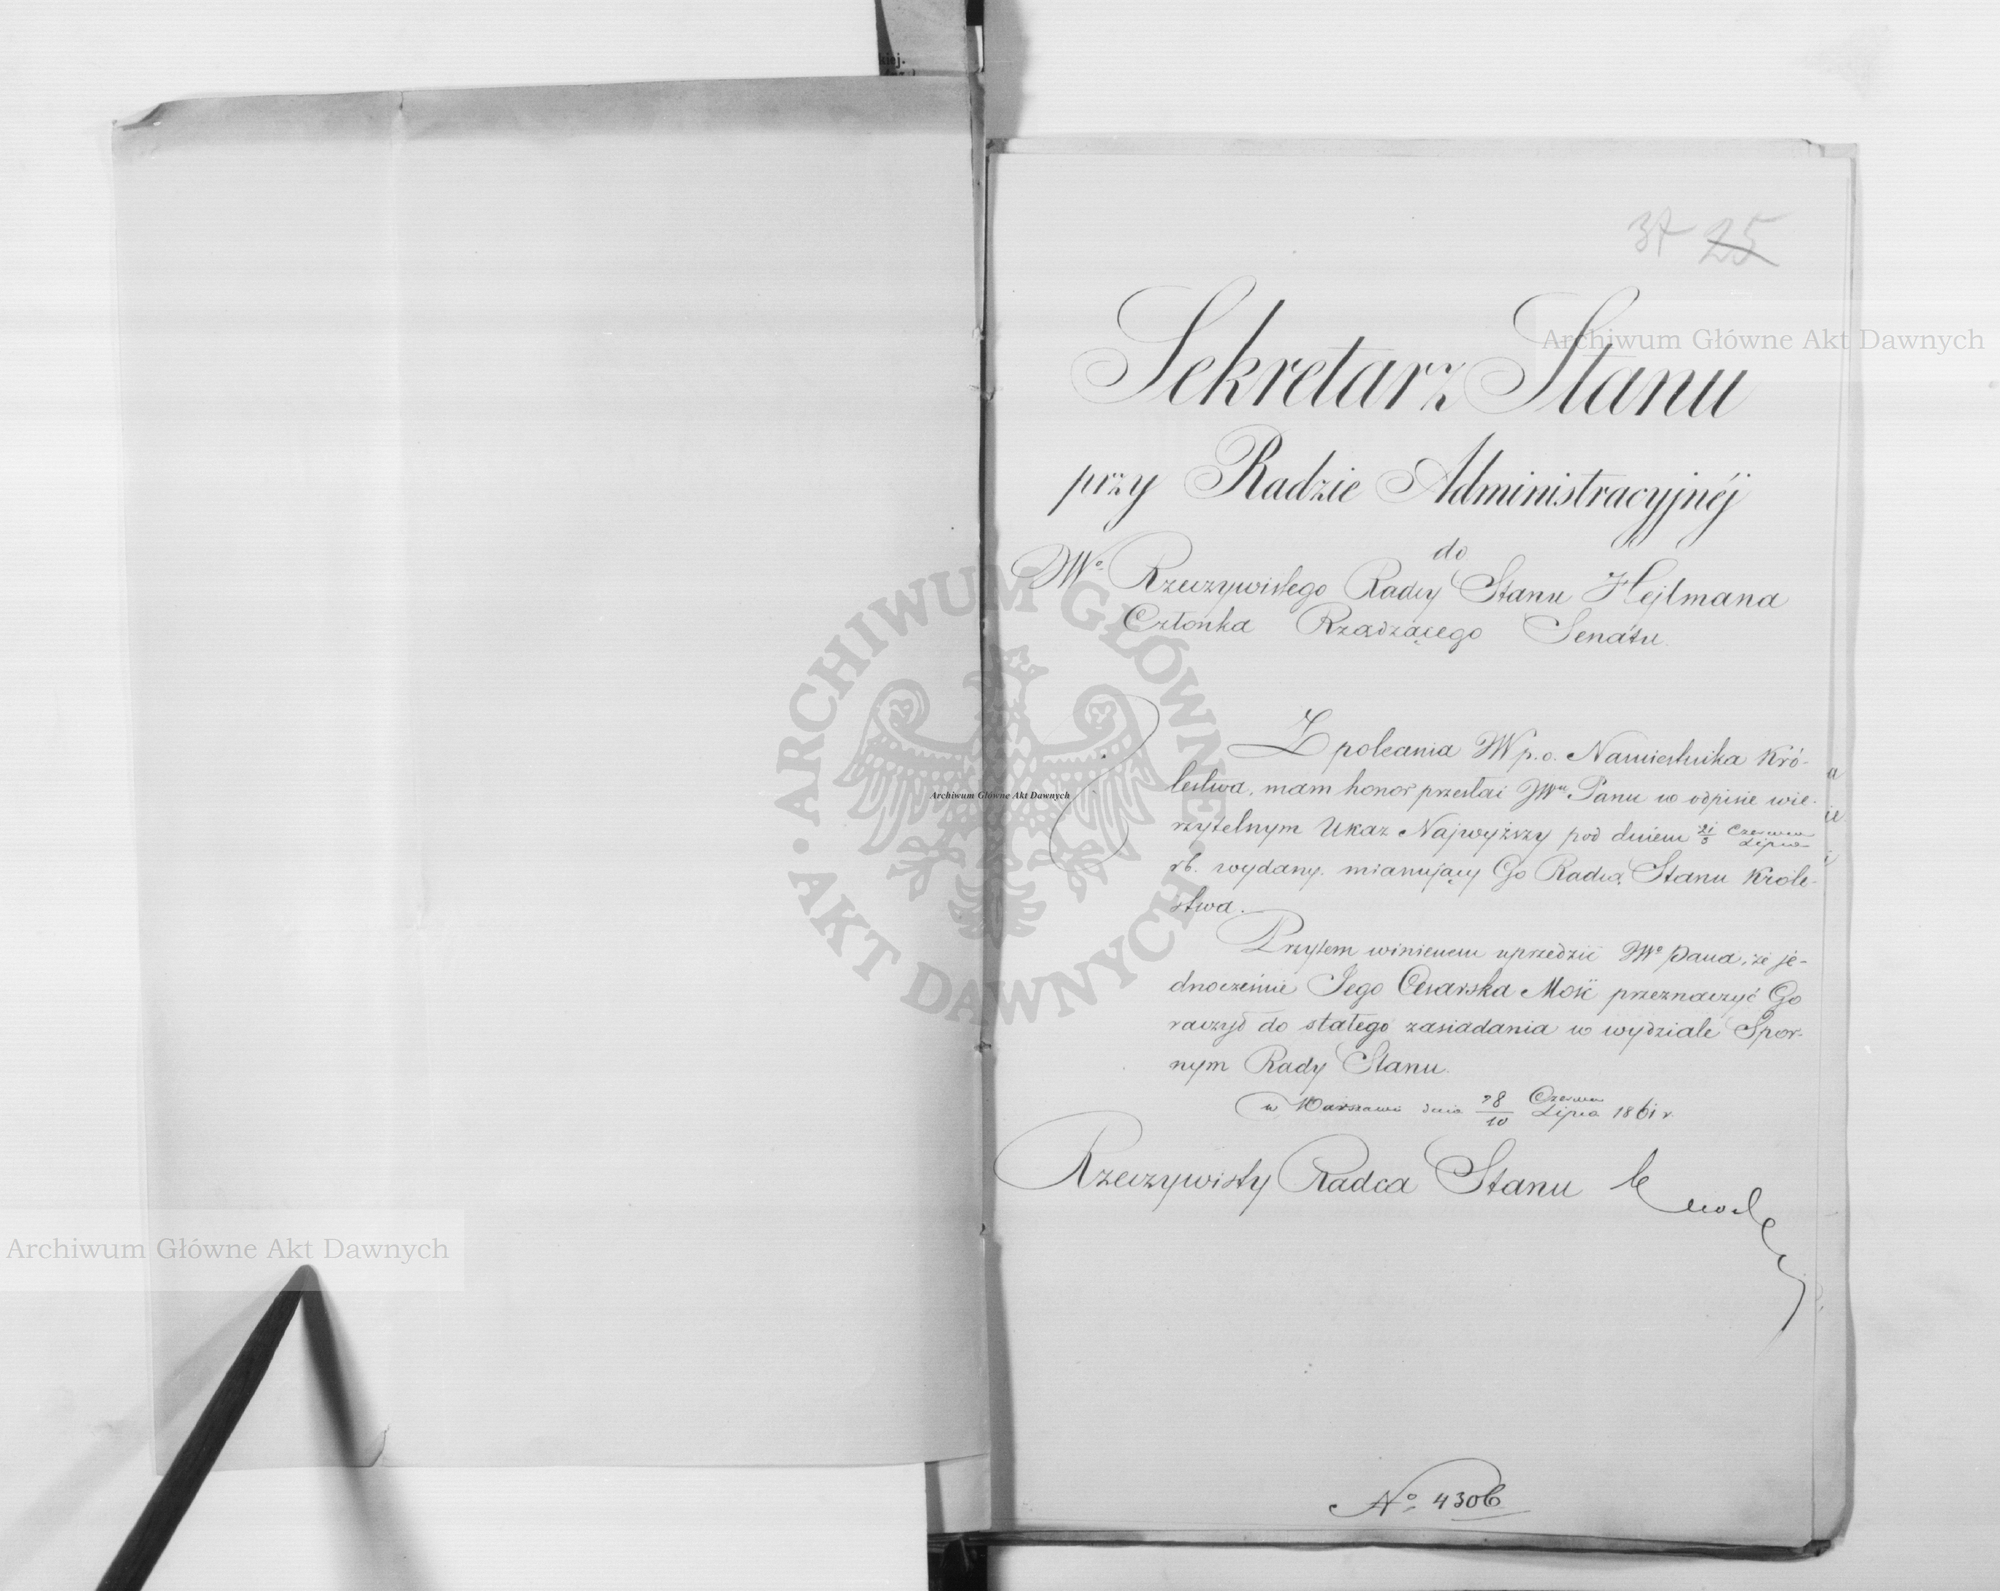 kiej.
37 25
Sekretarz Stanu
przy Radzie Administracyjnéj
do
JWº Rzeczywistego Radcy Stanu Hejlmana
Członka Rządzącego Senatu.
Z polecania JW p.o. Namiestnika Kró-
lestwa, mam honor przesłać JWu Panu w odpisie wie-
rzytelnym Ukaz Najwyższy pod dniem 21/3 Czerwca/Lipca
rb. wydany, mianujący Go Radcą Stanu Króle-
stwa.
Przytem winienem uprzedzić JWº Pana, że je-
dnocześnie Jego Cesarska Mość przeznaczyć Go
raczył do stałego zasiadania w wydziale Spor-
nym Rady Stanu.
w Warszawie dnia 28/10 Czerwca/Lipca 1861 r.
Rzeczywisty Radca Stanu
Nº 4306
Archiwum Główne Akt Dawnych
Archiwum Główne Akt Dawnych
Archiwum Główne Akt Dawnych
ARCHIWUM GŁÓWNE • AKT DAWNYCH •